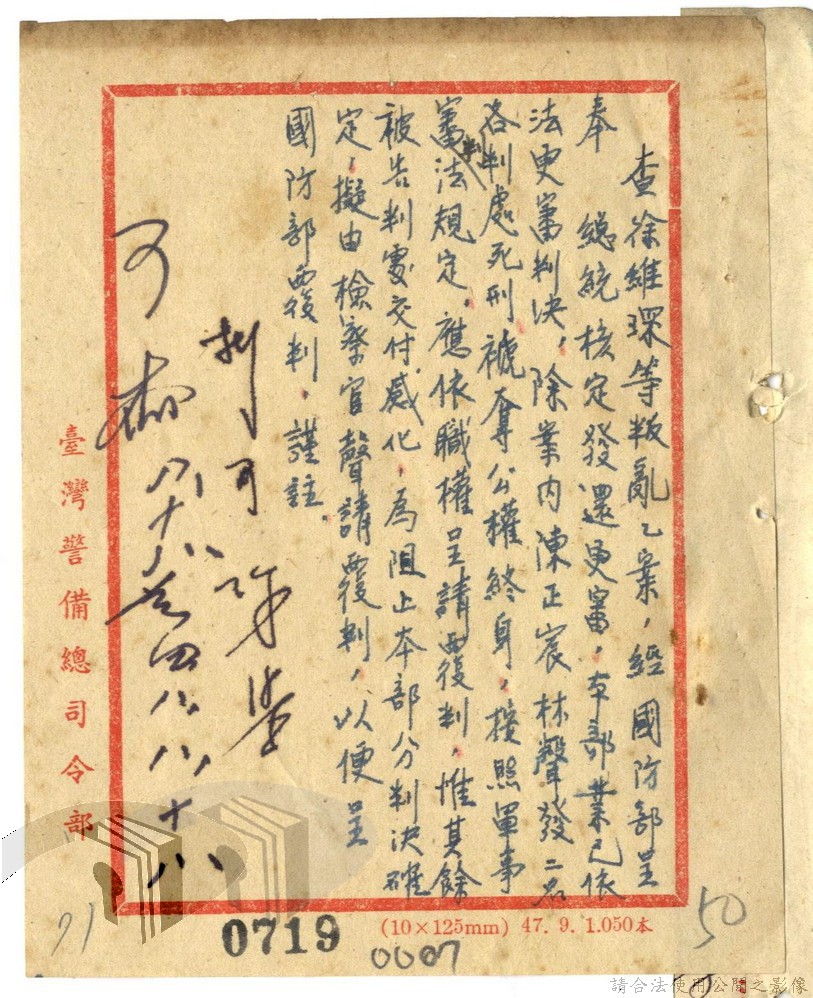 查徐維琛等叛亂乙案，經國防部呈
奉　總統核定發還更審，本部業已依
法更審判決，除案內陳正宸林聲發二名
各判處死刑，褫奪公權終身，按照軍事
審判法規定，應依職權呈請覆判，惟其餘
被告判處交付感化，為阻止本部分判決確
定，擬由檢察官聲請覆判，以便呈
國防部覆判，謹註。
可
八、十八
臺灣警備總司令部
0719
(10×125mm) 47. 9. 1.050本
0007
50
71
請合法使用公開之影像